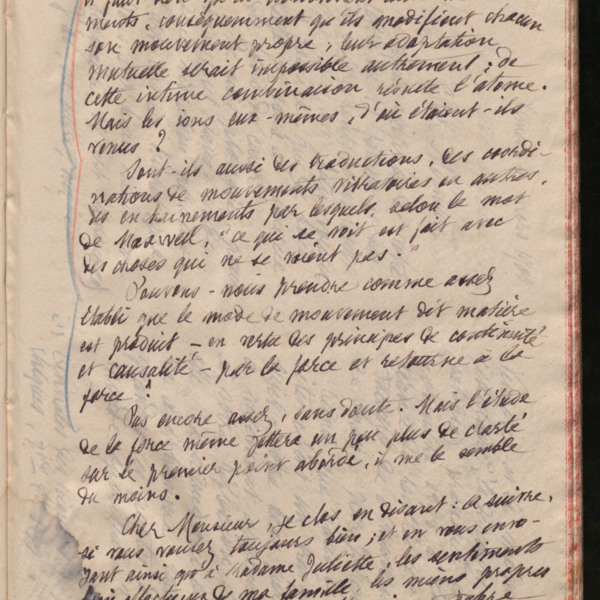 ments, conséquemment qu'ils modifient chacun
son mouvement propre, leur adaptation
mutuelle serait impossible autrement ; de
cette intime combinaison résulte l'atome.
Mais les ions eux-mêmes, d'où étaient-ils
venus ?
Sont-ils aussi des traductions, des coordi-
nations de mouvements vibratoires ou autres,
des entraînements par lesquels, selon le mot
de Maxwell, "ce qui se voit est fait avec
des choses qui ne se voient pas."
Pouvons-nous prendre comme assez
établi que le mode de mouvement dit matière
est produit - en vertu des principes de continuité
et causalité - par la force et retourne à la
force ?
Pas encore assez, sans doute. Mais l'étude
de la force même jettera un peu plus de clarté
sur le premier point abordé, il me le semble
du moins.
Cher Monsieur, je clos en disant : à suivre,
si vous voulez toujours bien ; et en vous envo-
yant ainsi qu'à Madame Juliette, les sentiments
affectueux de ma famille, les miens propres